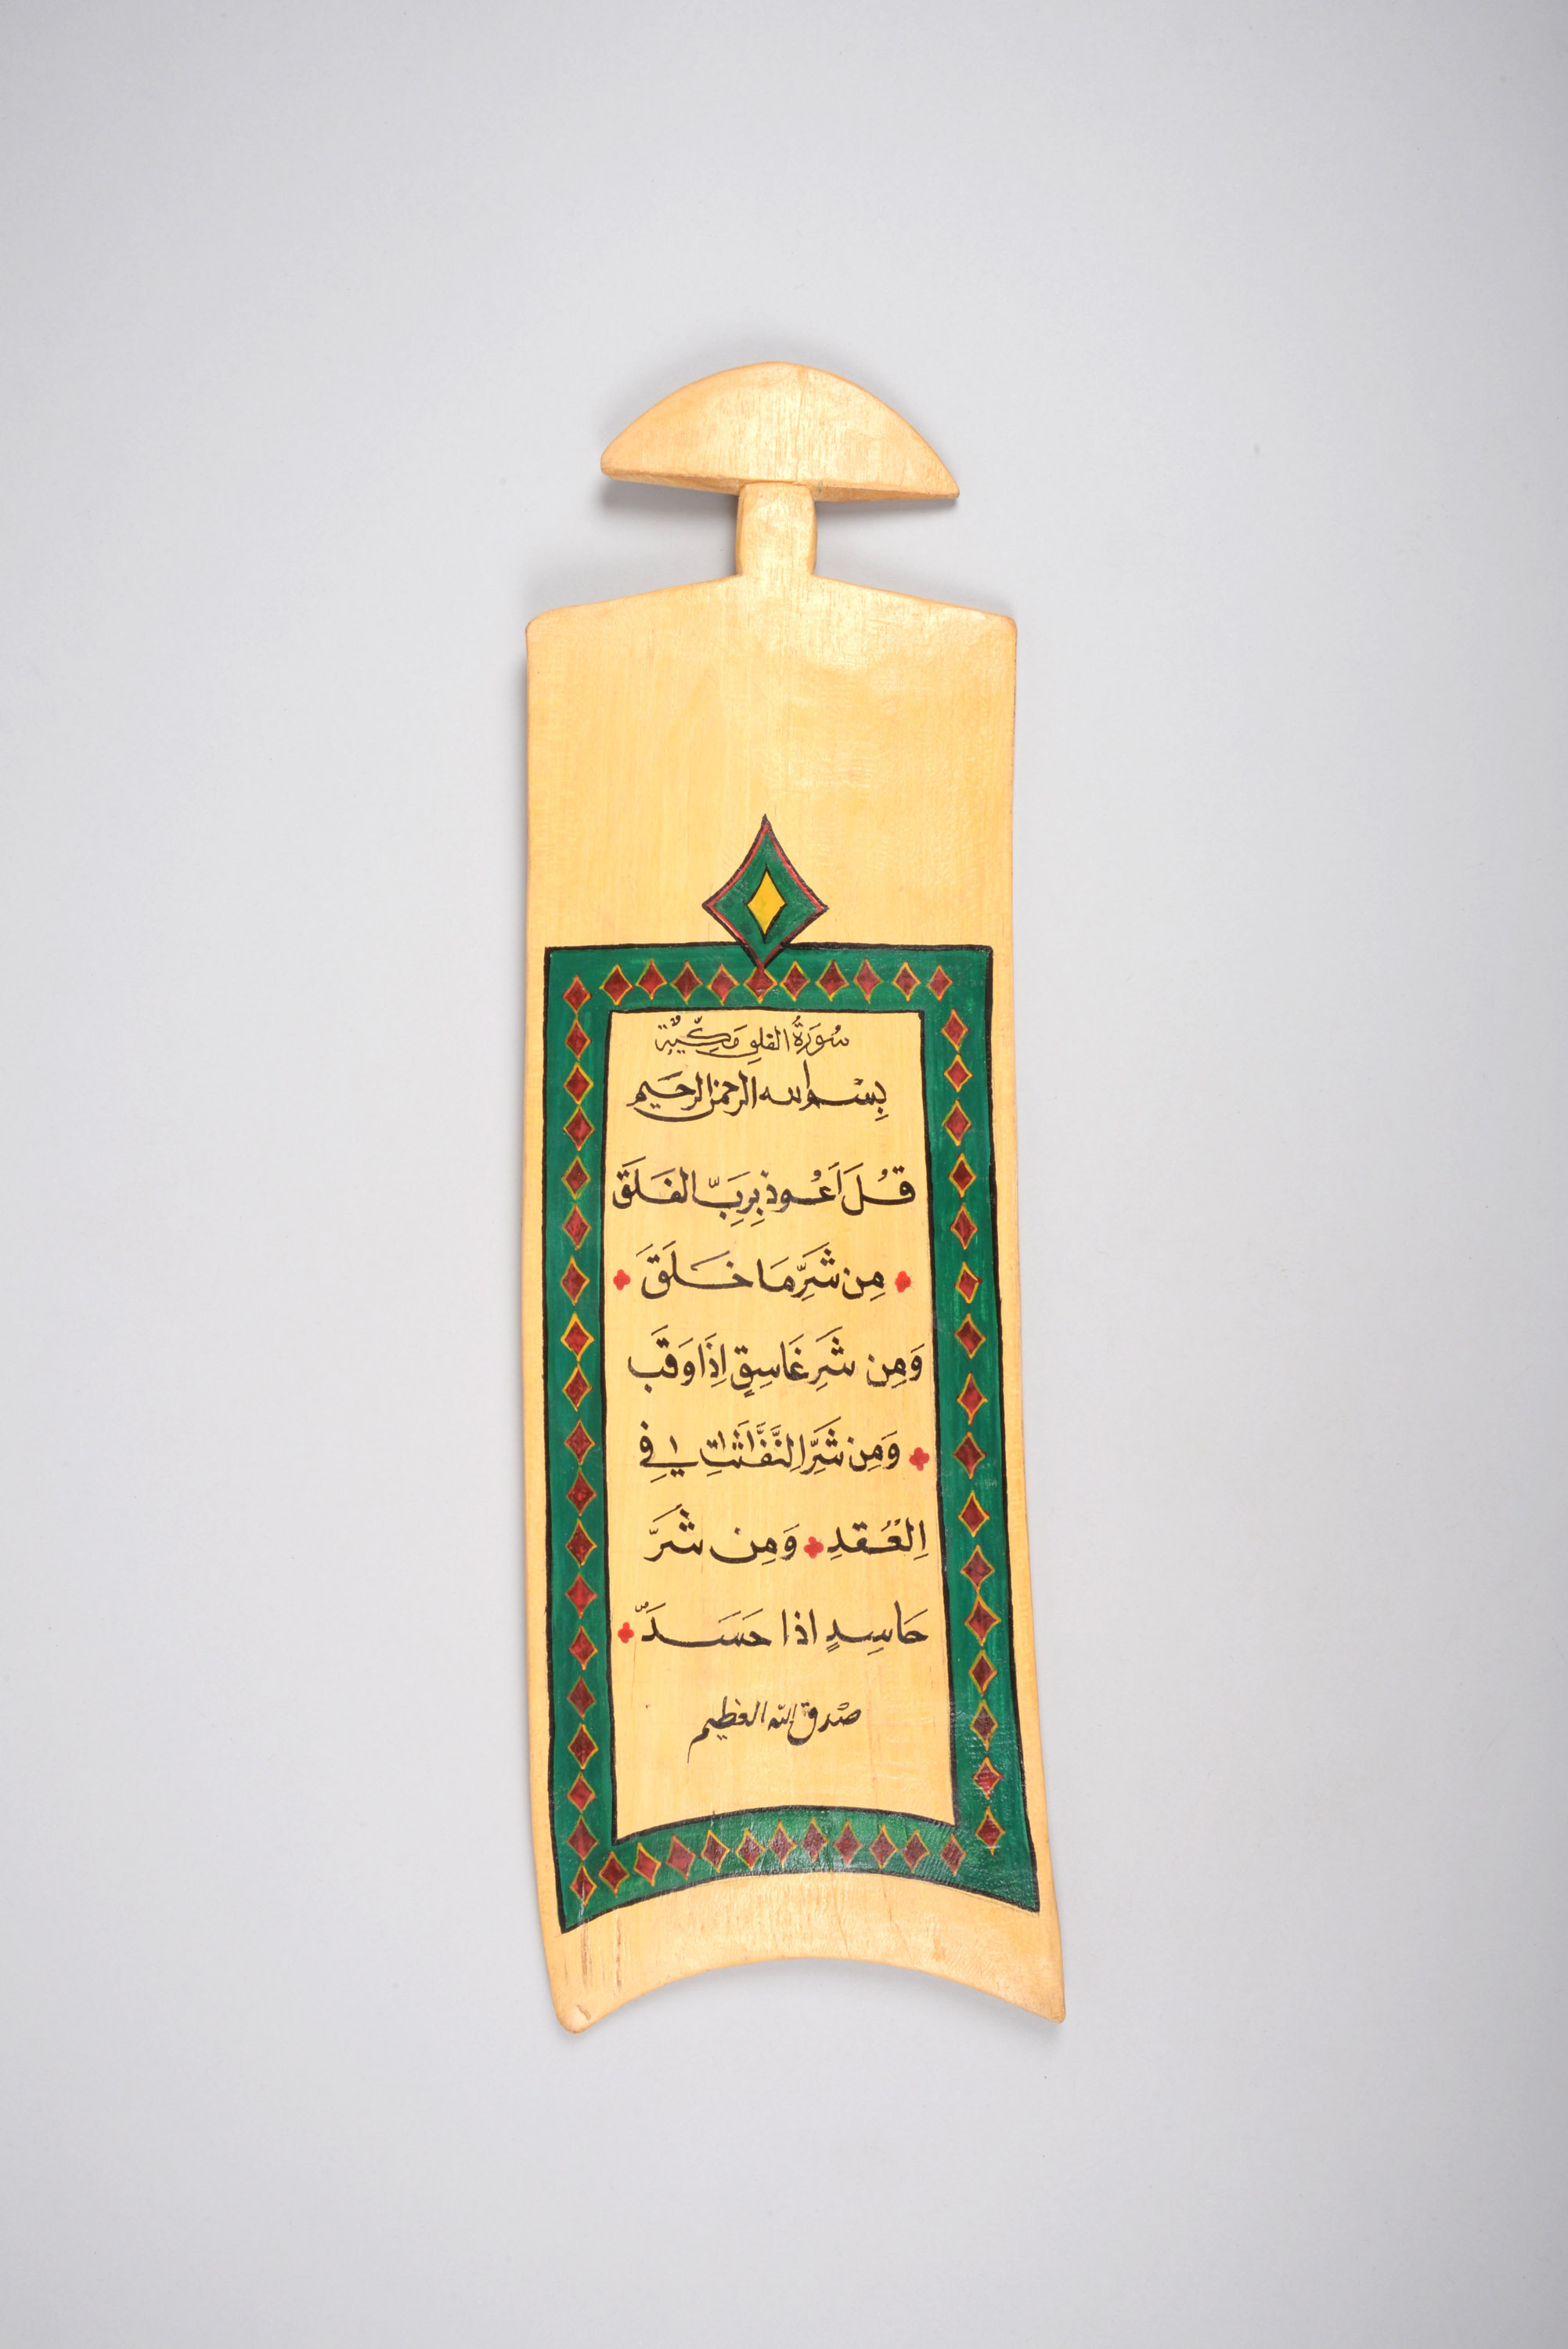 سُورَةُ الفلقِ مَكِّيَّةٌ
بِسْم الله الرحمن الرحيم
قُلَ اَعُوذ بِرَبِّ الفَلَقَ
مِن شَرِّ مَا خَلَقَ
وَمِن شَرِ غَاسِقٍ اِذَا وَقَبَ
وَمِن شَرِّ اِلنَّفَّٰثَٰتِ فِي
اِلْعُقدِ وَمِن شَرَّ
حَاسِدٍ اذا حَسَدَ
صْدق الله العظيم